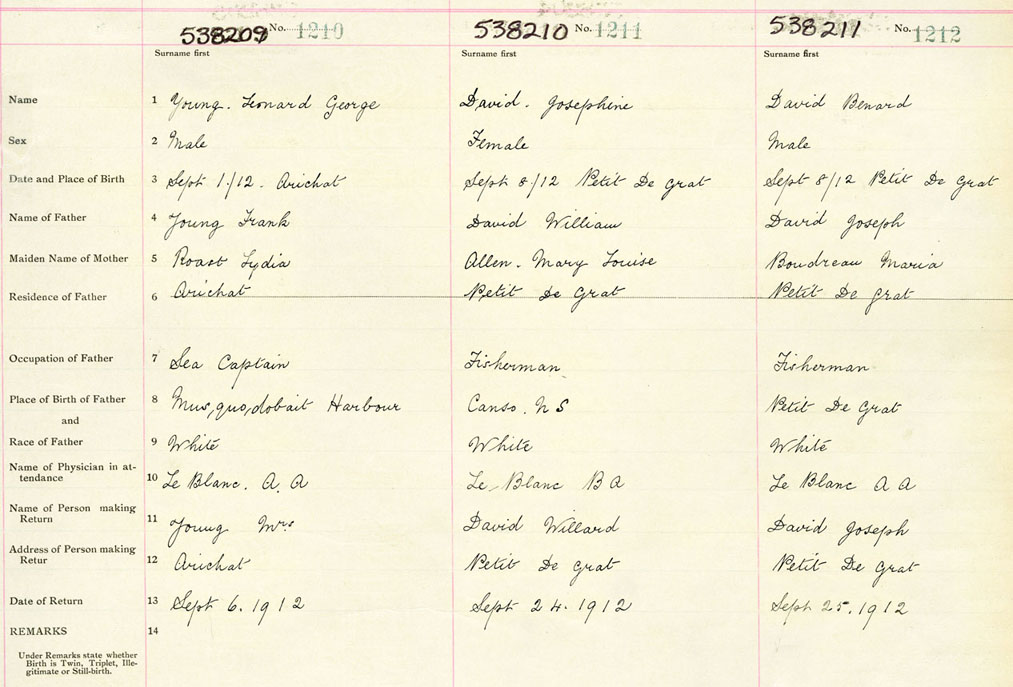 538209 No. 1210 538210 No. 1211 538211 No. 1212
Surname first Surname first Surname first
Name 1 Young. Leonard George David. Josephine David Benard
Sex 2 Male Female Male
Date and Place of Birth 3 Sept 1./12. Arichat Sept 8/12 Petit De Grat Sept 8/12 Petit De Grat
Name of Father 4 Young Frank David William David Joseph
Maiden Name of Mother 5 Roast Lydia Allen. Mary Louise Boudreau Maria
Residence of Father 6 Arichat Petit De Grat Petit De Grat
Occupation of Father 7 Sea Captain Fisherman Fisherman
Place of Birth of Father 8 Mus,quo,dobait Harbour Canso. N S Petit De Grat
and
Race of Father 9 White White White
Name of Physician in at-
tendance 10 Le Blanc. A. A Le Blanc B A Le Blanc A A
Name of Person making
Return 11 Young Mrs David Willard David Joseph
Address of Person making
Retur 12 Arichat Petit De Grat Petit De Grat
Date of Return 13 Sept 6. 1912 Sept 24. 1912 Sept 25. 1912
REMARKS 14
Under Remarks state whether
Birth is Twin, Triplet, Ille-
gitimate or Still-birth.